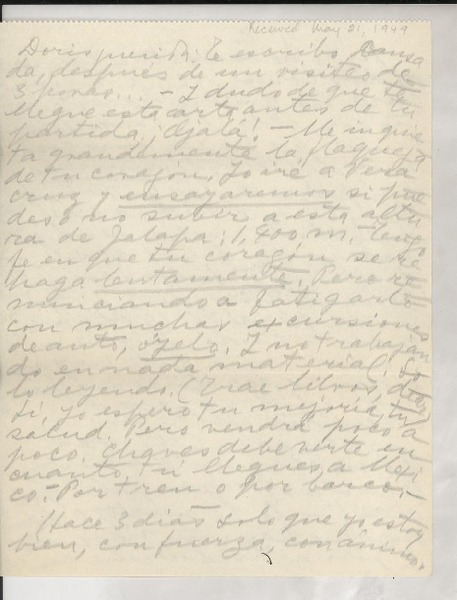 Received May 21, 1949
Doris querida: Te escribo cansa
da, después de un visiteo de
3 horas... – Y dudo de que te
llegue esta carta antes de tu
partida. ¡Ojalá! – Me inquie
ta grandemente la flaqueza
de tu corazón. Yo iré a Vera
cruz y ensayaremos si pue
des o no subir a esta altu
ra de Jalapa: 1,400 m. Tengo
fe en que tu corazón se re
haga lentamente. Pero re
nunciando a fatigarlo
con muchas excursiones
de auto, óyelo. Y no trabajan
do en nada material. So
lo leyendo. (Trae libros,
Sí, yo espero tu mejoría, tu
salud. Pero vendrá poco a
poco. Chaves debe verte en
cuanto tú llegues a Méxi
co. – Por tren o por barco. –
Hace 3 días solo que yo estoy
bien, con fuerza, con ánimo.